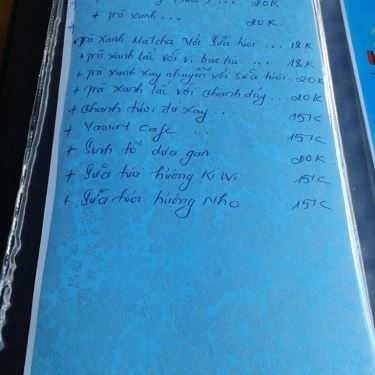 ... 20K
+ trà xanh ... 20K
+
trà xanh Matcha Với Sữa tươi ... 18K
+ trà xanh lắc với vị bạc hà ... 18K
+ trà xanh xay nhuyễn với sữa tươi .. 20K
+ trà xanh lắc với chanh dây ... 20K
+ chanh tươi đá xay ... 15K
+ Yaourt cafe ... 15K
+ Sinh tố dưa gan 20K
+ Sữa tươi hương KiWi 15K
+ Sữa tươi hương Nho 15K